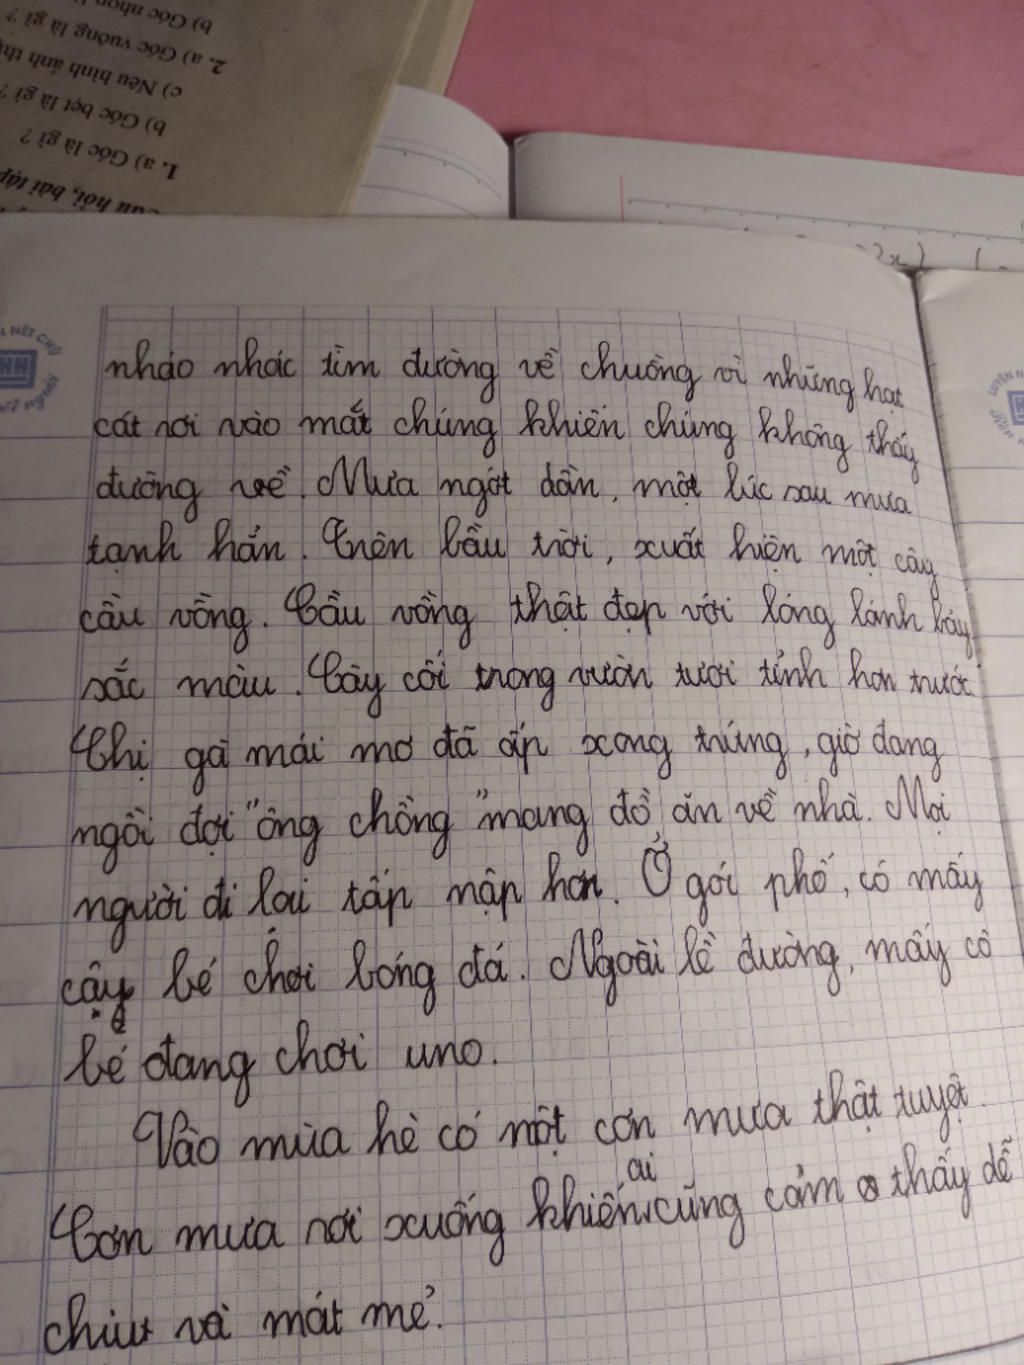 b) Góc nhọn
2. a) Góc vuông là gì ?
c) Nêu hình ảnh
b) Góc bẹt là gì ?
1. a) Góc là gì ?
hỏi, bài tập
NÉT CHỮ
HN
người
LUYỆN
nháo nhác tìm đường về chuồng vì những hạt
cát rơi vào mắt chúng khiến chúng không thấy
đường về. Mưa ngớt dần, một lúc sau mưa
tạnh hẳn. Trên bầu trời, xuất hiện một cây
cầu vồng. Cầu vồng thật đẹp với lóng lánh bảy
sắc màu. Cây cối trong vườn tươi tỉnh hơn trước
Chị gà mái mơ đã ấp xong trứng, giờ đang
ngồi đợi "ông chồng" mang đồ ăn về nhà. Mọi
người đi lại tấp nập hơn. Ở gới phố, có mấy
cậy bé chơi bóng đá. Ngoài lề đường, mấy cô
bé đang chơi uno.
Vào mùa hè có một cơn mưa thật tuyệt.
Cơn mưa rơi xuống khiến ai cũng cảm thấy dễ
chịu và mát mẻ.